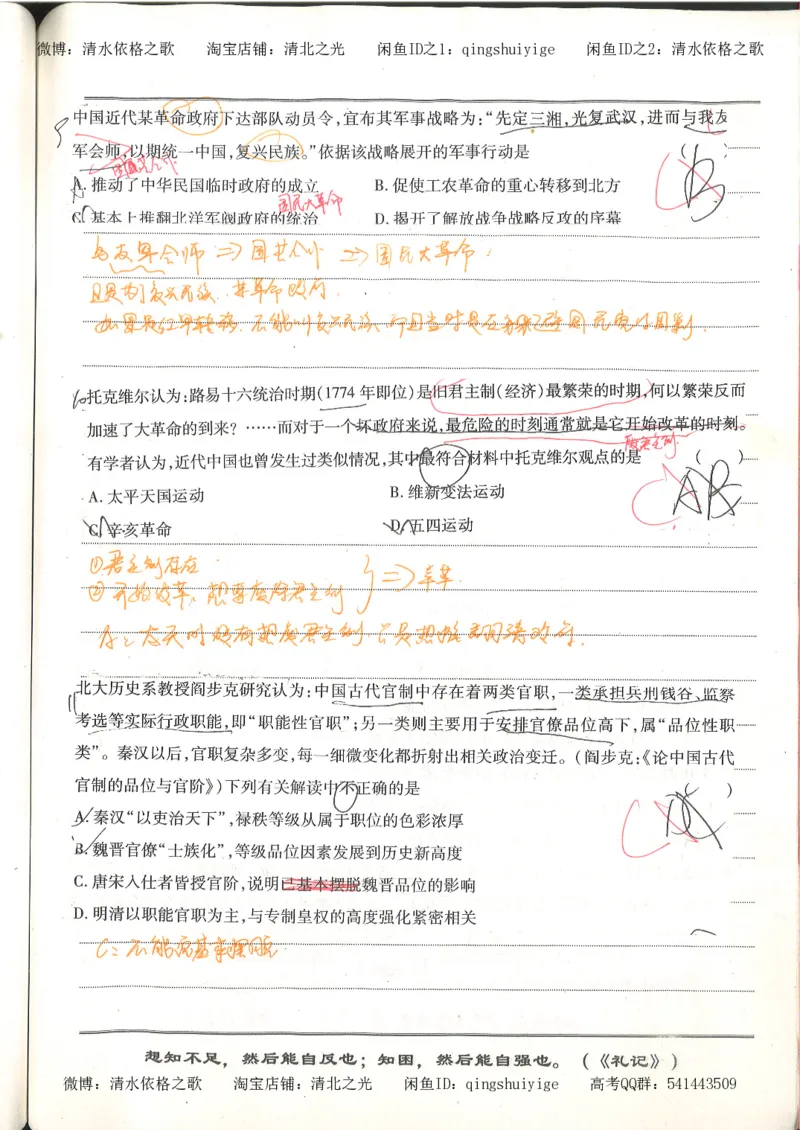 微博：清水依格之歌 淘宝店铺：清北之光 闲鱼ID之1：qingshuiyige 闲鱼ID之2：清水依格之歌
中国近代某革命政府下达部队动员令，宣布其军事战略为：“先定三湘，光复武汉，进而与我友
军会师，以期统一中国，复兴民族。”依据该战略展开的军事行动是 （ ） B
A. 推动了中华民国临时政府的成立 B. 促使工农革命的重心转移到北方
国民大革命
C. 基本上推翻北洋军阀政府的统治 D. 揭开了解放战争战略反攻的序幕
与友军会师 ⇒ 国共合作 ⇒ 国民大革命
且是为了复兴民族、某革命政府
6 托克维尔认为：路易十六统治时期（1774 年即位）是旧君主制（经济）最繁荣的时期，何以繁荣反而
加速了大革命的到来？……而对于一个坏政府来说，最危险的时刻通常就是它开始改革的时刻。
有学者认为，近代中国也曾发生过类似情况，其中最符合材料中托克维尔观点的是 （ ）
A. 太平天国运动 B. 维新变法运动
C. 辛亥革命 D. 五四运动
①君主制存在
②开始改革，想要废除君主制 ⇒ 辛革.
11 北大历史系教授阎步克研究认为：中国古代官制中存在着两类官职，一类承担兵刑钱谷、监察
考选等实际行政职能，即“职能性官职”；另一类则主要用于安排官僚品位高下，属“品位性职
类”。秦汉以后，官职复杂多变，每一细微变化都折射出相关政治变迁。（阎步克：《论中国古代
官制的品位与官阶》）下列有关解读中不正确的是 （ ）
A. 秦汉“以吏治天下”，禄秩等级从属于职位的色彩浓厚
B. 魏晋官僚“士族化”，等级品位因素发展到历史新高度
C. 唐宋入仕者皆授官阶，说明已基本摆脱魏晋品位的影响
D. 明清以职能官职为主，与专制皇权的高度强化紧密相关
C：不能说基本摆脱
想知不足，然后能自反也；知困，然后能自强也。（《礼记》）
微博：清水依格之歌 淘宝店铺：清北之光 闲鱼ID：qingshuiyige 高考QQ群：541443509